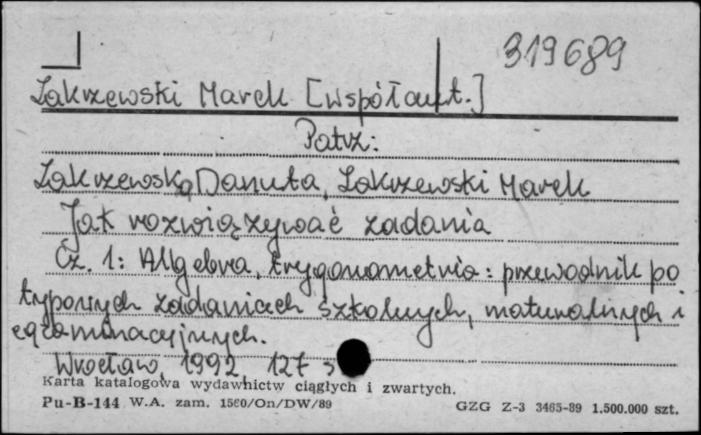 319689
Zakrzewski Marek [współaut.]
Patrz:
Zakrzewska Danuta, Zakrzewski Marek
Jak rozwiązywać zadania
Cz. 1: Algebra, trygonometria: przewodnik po
typowych zadaniach szkolnych, maturalnych i
egzaminacyjnych.
Wrocław, 1992, 127 s
Karta katalogowa wydawnictw ciągłych i zwartych.
Pu-B-144 W.A. zam. 1560/On/DW/89 GZG Z-3 3465-89 1.500.000 szt.